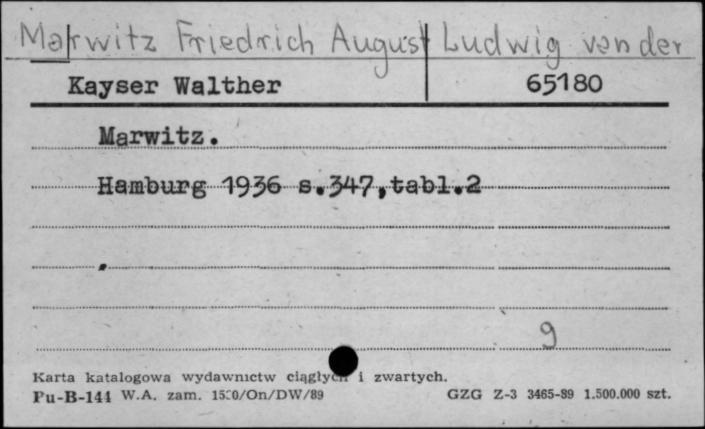 Marwitz Friedrich August Ludwig von der
Kayser Walther 65180
Marwitz.
Hamburg 1936 s.347,tabl.2
9
Karta katalogowa wydawnictw ciągłych i zwartych.
Pu-B-144 W.A. zam. 1520/On/DW/89 GZG Z-3 3465-89 1.500.000 szt.